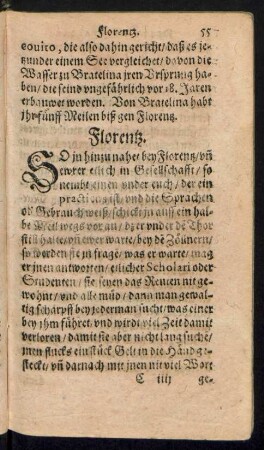 Florentz. 55
couico, die also dahin gericht/ daß es je-
tzunder einem See vergleichet/ davon die
Wasser zu Bratelina jren Vrsprung ha-
ben/ die seind vngefährlich vor 18. Jaren
erbauwet worden. Von Bratelina habt
jhr fünff Meilen biß gen Florentz.
Florentz.
SO jr hinzu nahe/ bey Florentz/ vñ
ewrer etlich in Gesellschafft/ so
nembt einen vnder euch/ der ein
practi ist/ vnd die Sprachen
oder Gebrauch weiß/ schickt jn auff ein hal-
be Meil wegs voran/ der vnder dē Thor
still halte/ vñ ewer warte/ bey dē Zöllnern/
so werden sie jn frage/ was er warte/ mag
er jnen antworten/ etlicher Scholari oder
Studenten/ sie seyen das Reuten nit ge-
wohnt/ vnd alle müd/ dann man gewal-
tig scharpff bey jederman sucht/ was einer
bey jhm führet/ vnd wirdt viel Zeit damit
verloren/ damit sie aber nicht lang suche/
jnen flucks ein stück Gelt in die Händ ge-
steckt/ vñ darnach mit jnen nit viel Wort
C iiij ge-